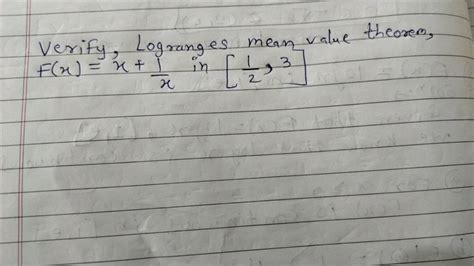 Verify, Logranges mean value theorem,
F(x) = x + 1/x in [1/2, 3]